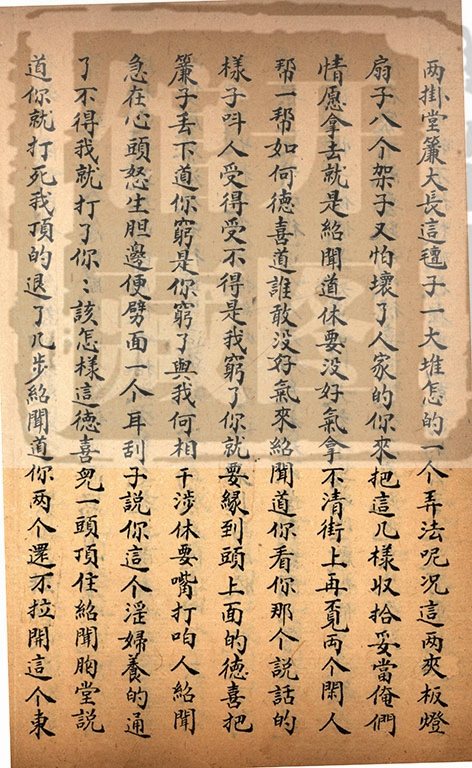 两掛堂簾大長這毡子一大堆怎的一个弄法呢况這两夾板燈
扇子八个架子又怕壞了人家的你来把這几樣収拾妥當俺們
情愿拿去就是紹聞道休要没好氣拿不清街上再覓両个閑人
帮一帮如何德喜道誰敢没好氣來紹聞道你看你那个説話的
樣子呌人受得受不得是我窮了你就要縁到頭上面的德喜把
簾子丢下道你窮是你窮了與我何相干涉休要嘴打咱人紹聞
急在心頭怒生胆邊便劈面一个耳刮子説你這个滛婦養的通
了不得我就打了你：該怎樣這德喜兒一頭頂住紹聞胸堂説
道你就打死我頂的退了几步紹聞道你两个還不拉開這个東